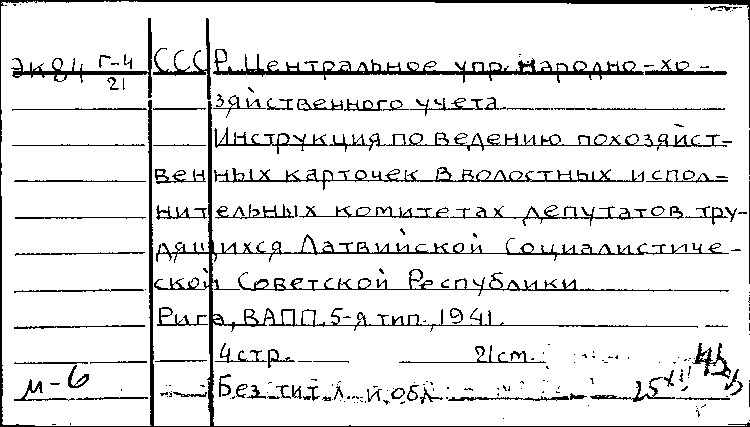 ЭК84 Г-4/21 СССР. Центральное упр. народно-хо-
зяйственного учета
Инструкция по ведению похозяйст-
венных карточек в волостных испол-
нительных комитетах депутатов тру-
дящихся Латвийской Социалистиче-
ской Советской Республики
Рига, ВАПП, 5-я тип., 1941.
4 стр. 21 см.
м-6 Без тит. л. и обл. 25 XII